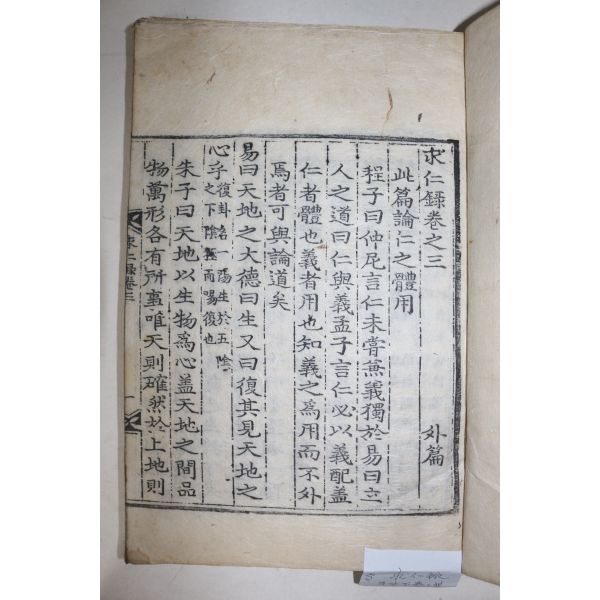 求仁錄卷之三
外篇
此篇論仁之體用
程子曰仲尼言仁未嘗兼義獨於易曰立
人之道曰仁與義孟子言仁必以義配盖
仁者體也義者用也知義之爲用而不外
焉者可與論道矣
易曰天地之大德曰生又曰復其見天地之
心乎復卦名一陽生於五陰
之下陰極而陽復也
朱子曰天地以生物爲心盖天地之間品
物萬形各有所事唯天則確然於上地則
求仁錄卷三
一
求仁錄